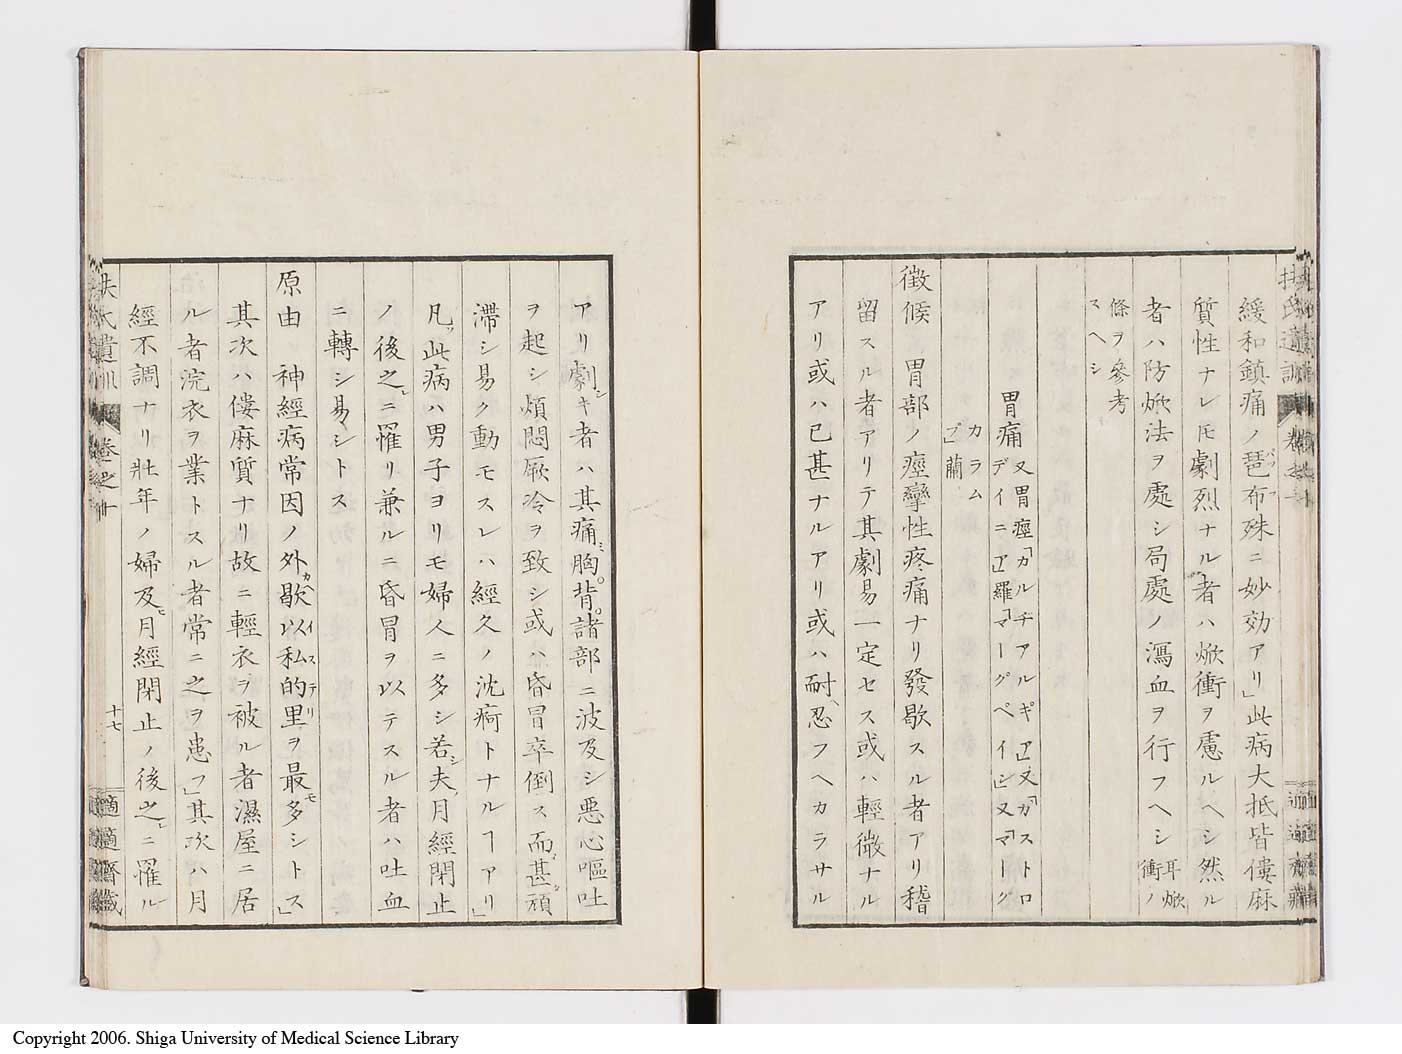 緩和鎮痛ノ琶布殊ニ妙効アリ」此病大抵皆僂麻
質性ナレ𪜈劇烈ナル者ハ焮衝ヲ慮ルヘシ然ル
者ハ防焮法ヲ處シ局處ノ瀉血ヲ行フヘシ 耳焮衝ノ
條ヲ參考スヘシ
胃痛 又胃痙「カルヂアルギア」又「ガストロデイニア」羅「マーグペイン」又「マーグカラムプ」蘭
徵候 胃部ノ痙攣性疼痛ナリ發歇スル者アリ稽
留スル者アリテ其劇易一定セス或ハ輕微ナル
アリ或ハ已甚ナルアリ或ハ耐忍フヘカラサル
アリ劇キ者ハ其痛胸背諸部ニ波及シ惡心嘔吐
ヲ起シ煩悶厥冷ヲ致シ或ハ昏冒卒倒ス而甚頑
滯シ易ク動モスレハ經久ノ沈痾トナルヿアリ」
凡此病ハ男子ヨリモ婦人ニ多シ若夫月經閉止
ノ後之ニ罹リ兼ルニ昏冒ヲ以テスル者ハ吐血
ニ轉シ易シトス
原由 神經病常因ノ外歇以私的里ヲ最多シトス」
其次ハ僂麻質ナリ故ニ輕衣ヲ被ル者濕屋ニ居
ル者浣衣ヲ業トスル者常ニ之ヲ患フ」其次ハ月
經不調ナリ壯年ノ婦及月經閉止ノ後之ニ罹ル
扶氏遺訓 卷之十 十七 適適齋藏
Copyright 2006. Shiga University of Medical Science Library